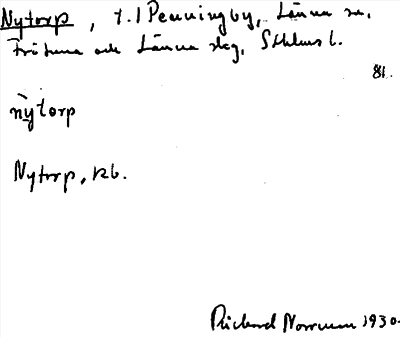 Nytorp, t. 1 Penningby, Länna sn,
Frötuna och Länna skg, Sthlms l.
81.
ny̆torp
Nytorp, kb.
Rickard Norrman 1930.